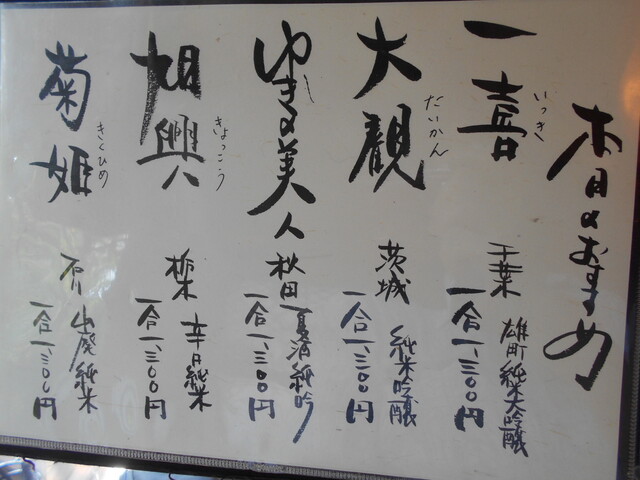 本日のおすすめ
一喜
いっき
千葉 雄町純米大吟醸
一合一、三〇〇円
大観
だいかん
茨城 純米吟醸
一合一、三〇〇円
ゆきの美人
秋田 夏酒純吟
一合一、三〇〇円
旭興
きょっこう
栃木 辛口純米
一合一、三〇〇円
菊姫
きくひめ
石川 山廃純米
一合一、三〇〇円